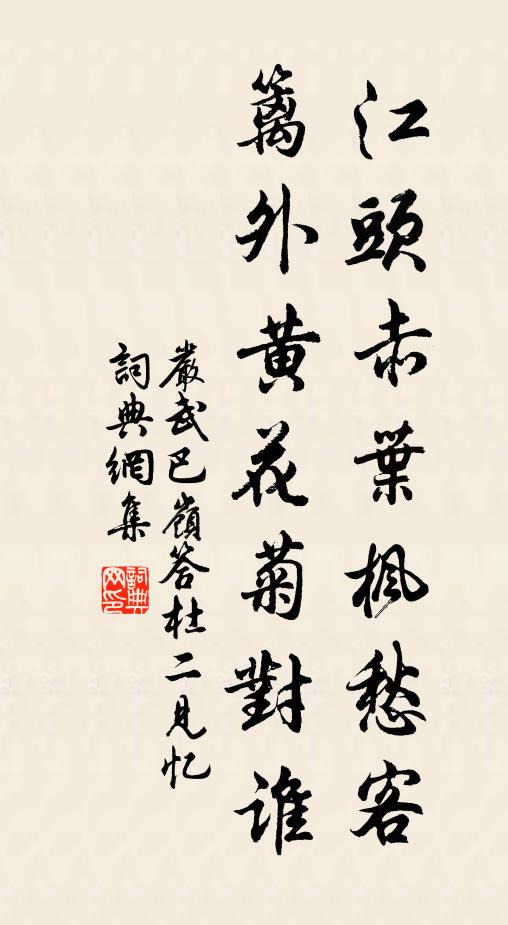 江頭赤葉楓愁客
籬外黄花菊對誰
嚴武巴嶺答杜二見忆
詞典網集
詞典網印